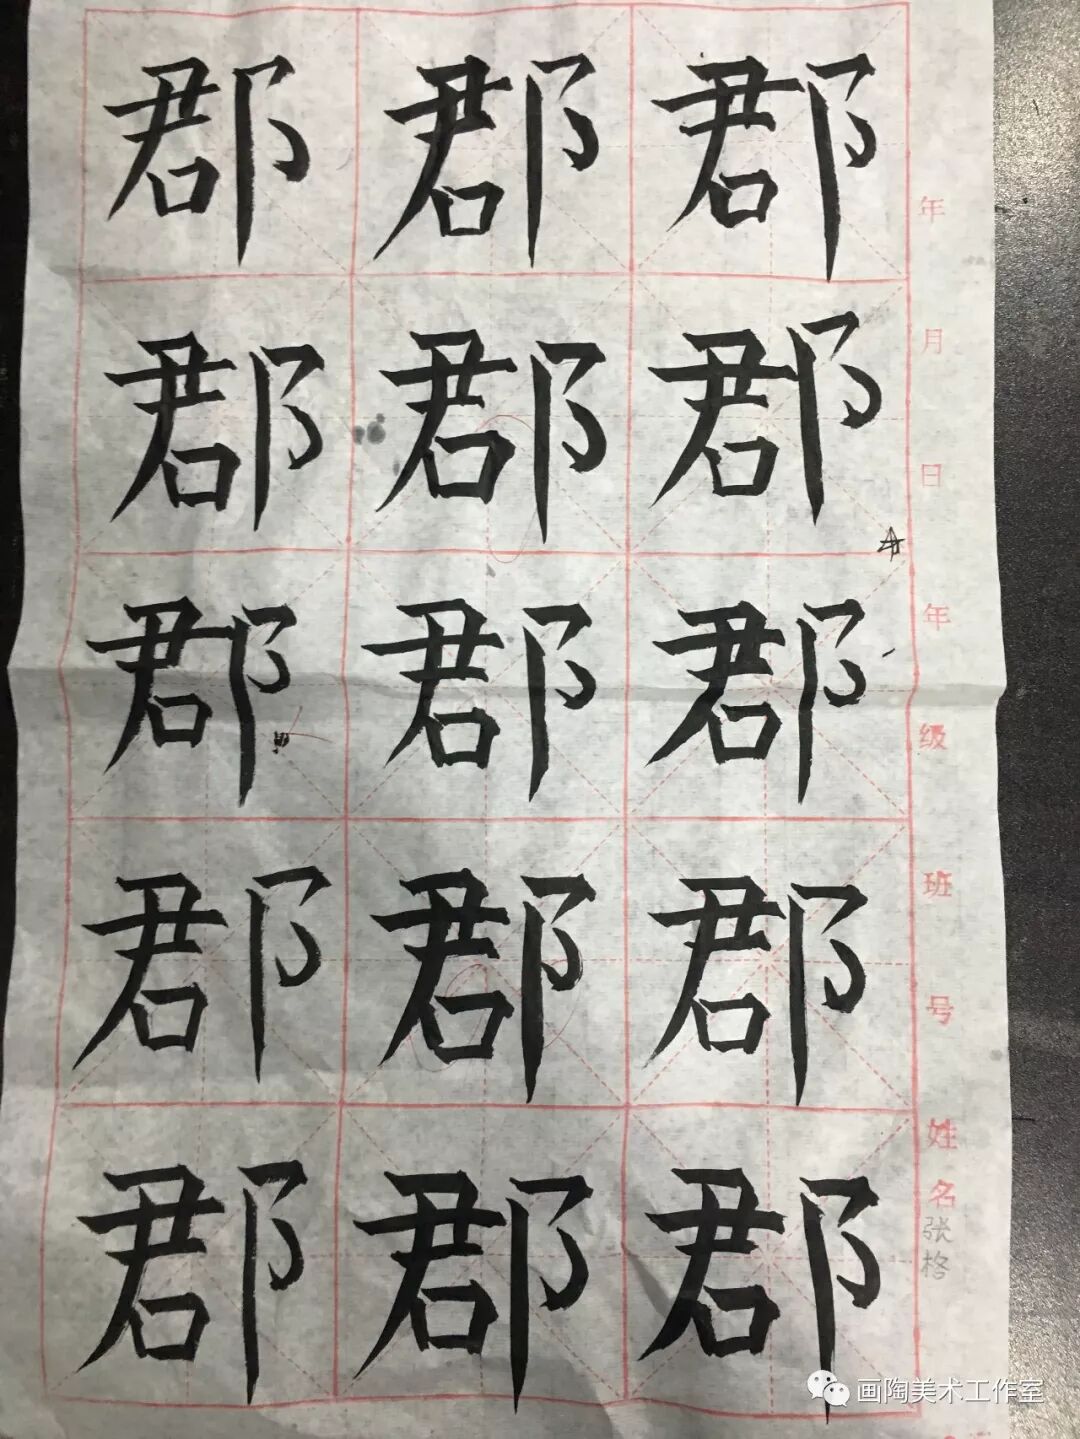 郡 郡 郡
郡 郡 郡
郡 郡 郡
郡 郡 郡
郡 郡 郡
年
月
日
年
级
班
号
姓
名
张
格
画陶美术工作室